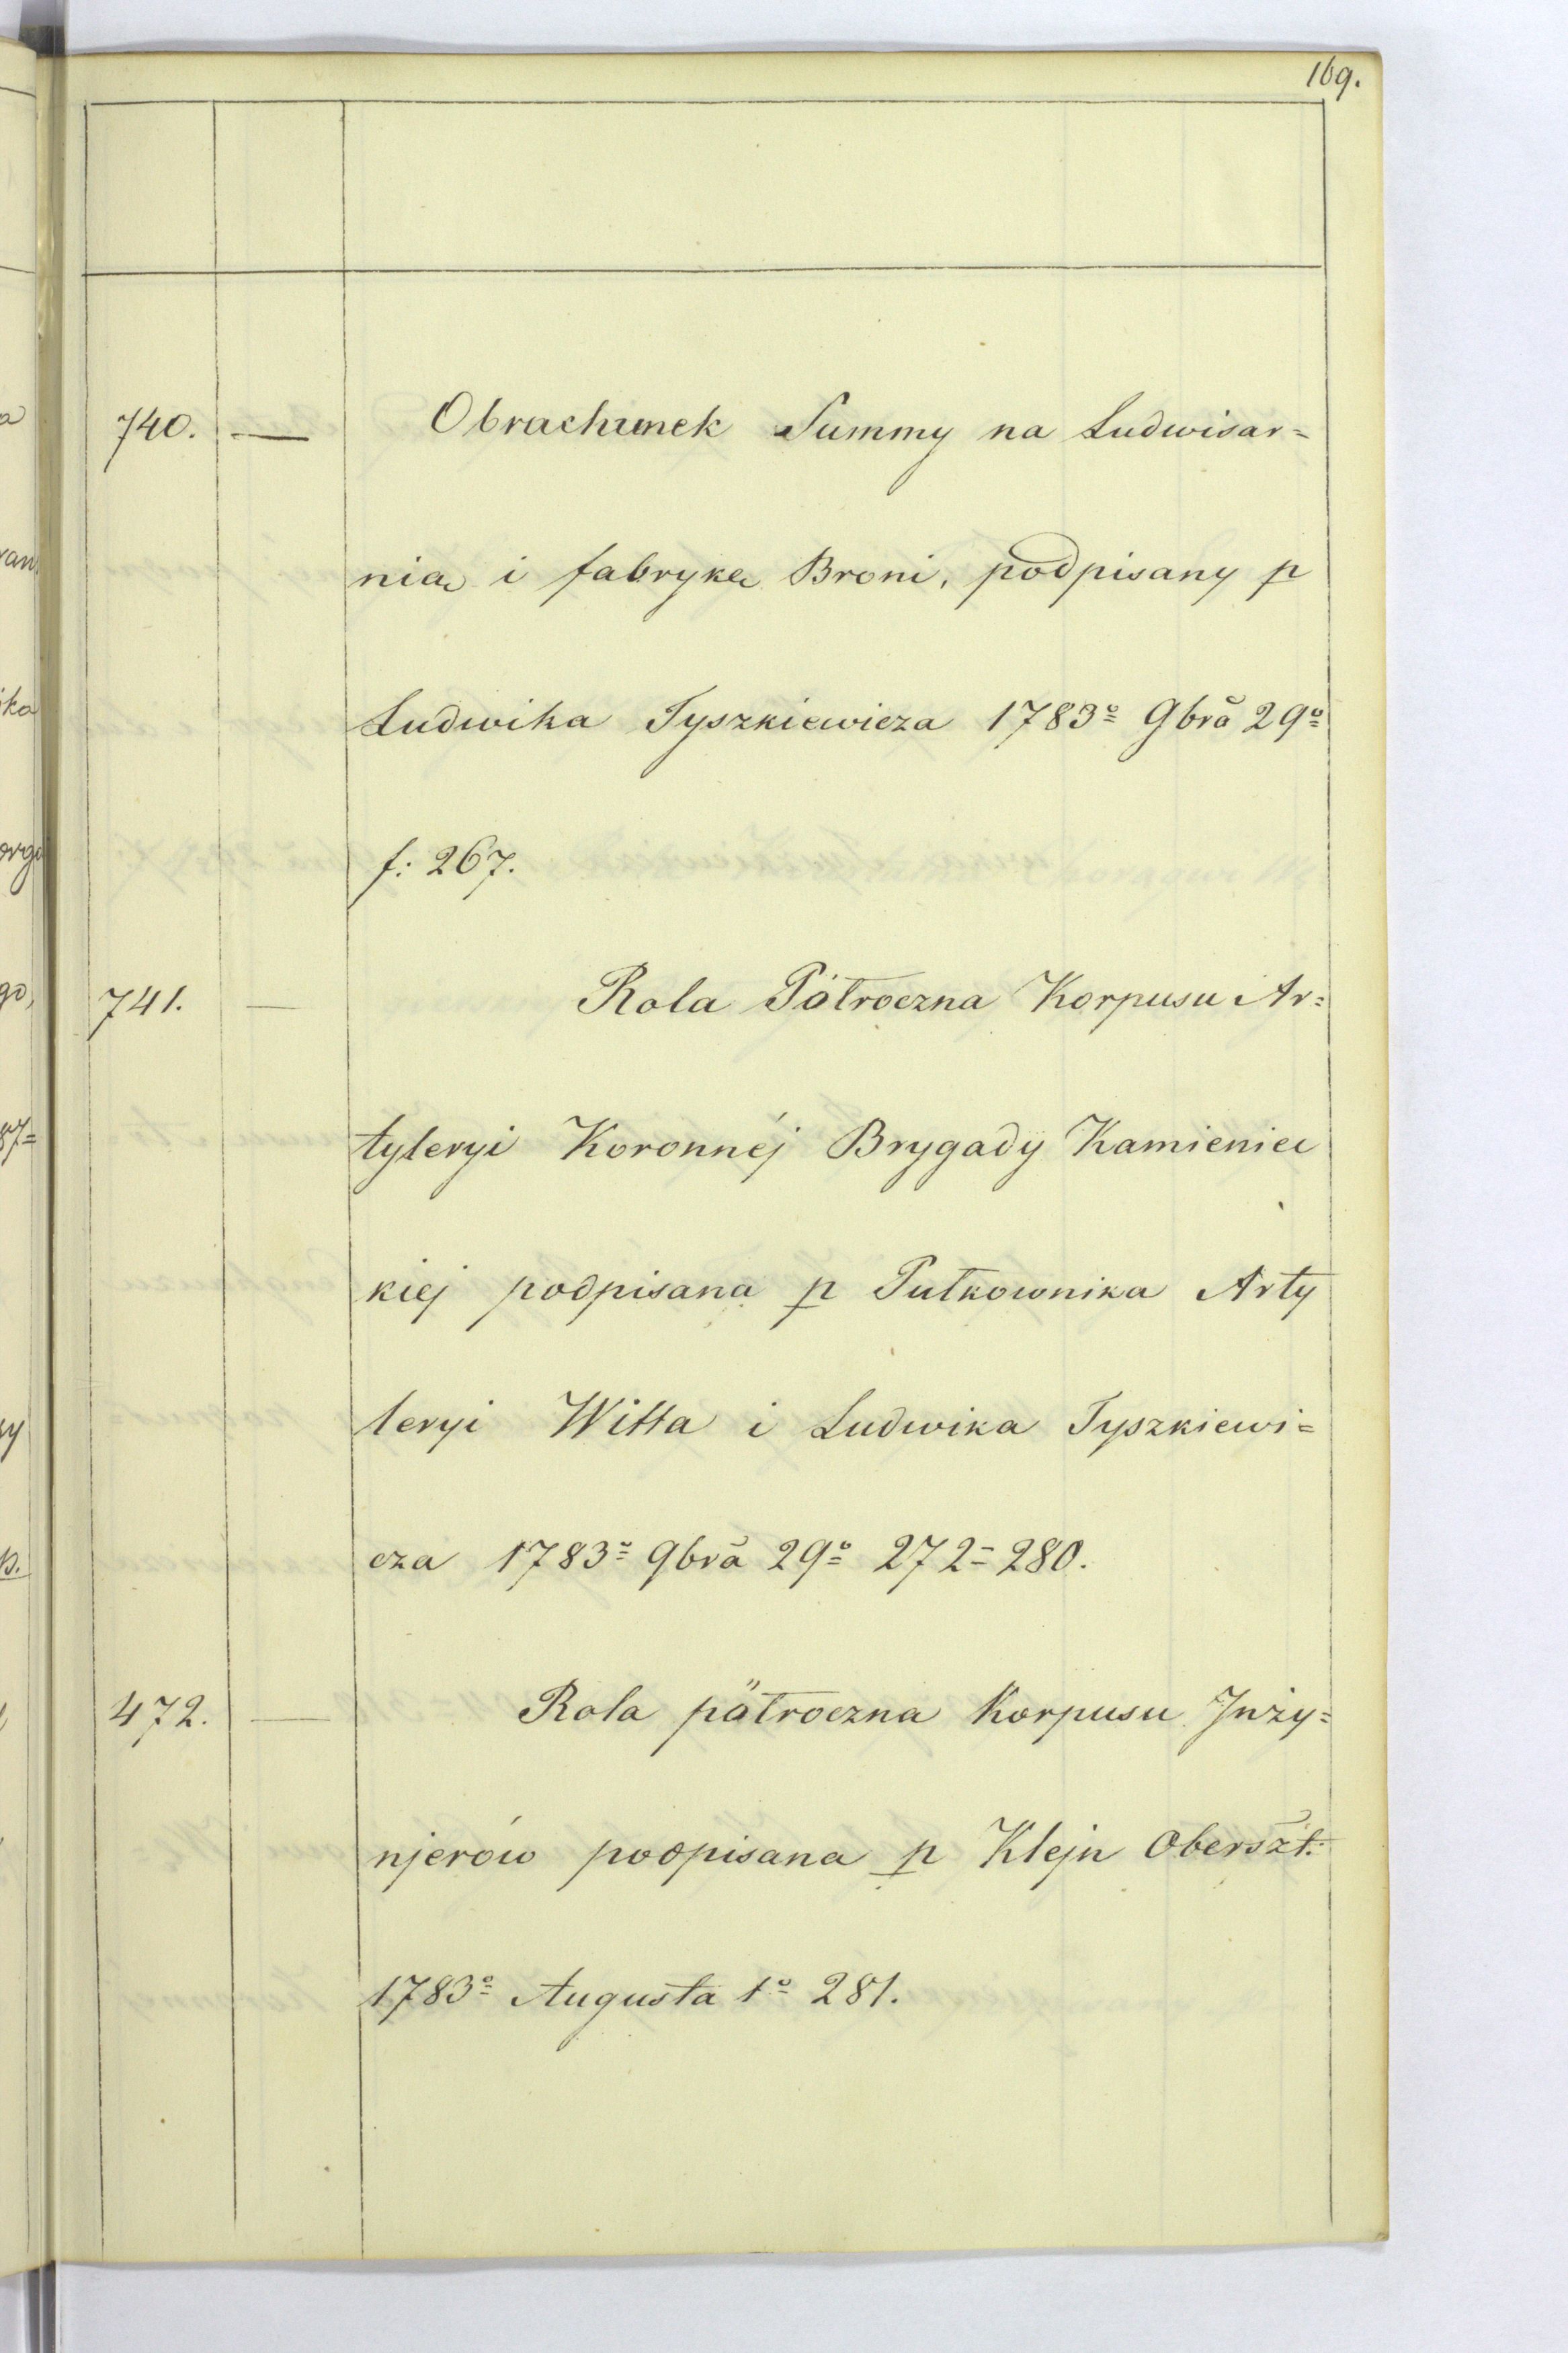 169.
740. — Obrachunek Summy na Ludwisar=
nią i fabrykę Broni, podpisany p
Ludwika Tyszkiewicza 1783º 9brã 29º
f: 267.
741. — Rola Półroczna Korpusu Ar=
tyleryi Koronnéj Brygady Kamieniec
kiej podpisana p Pułkownika Arty
leryi Witta i Ludwika Tyszkiewi=
cza 1783º 9brã 29º 272=280.
472. — Rola półroczna Korpusu Inży=
njerów podpisana p Klejn Oberszt:
1783º Augusta 1º 281.